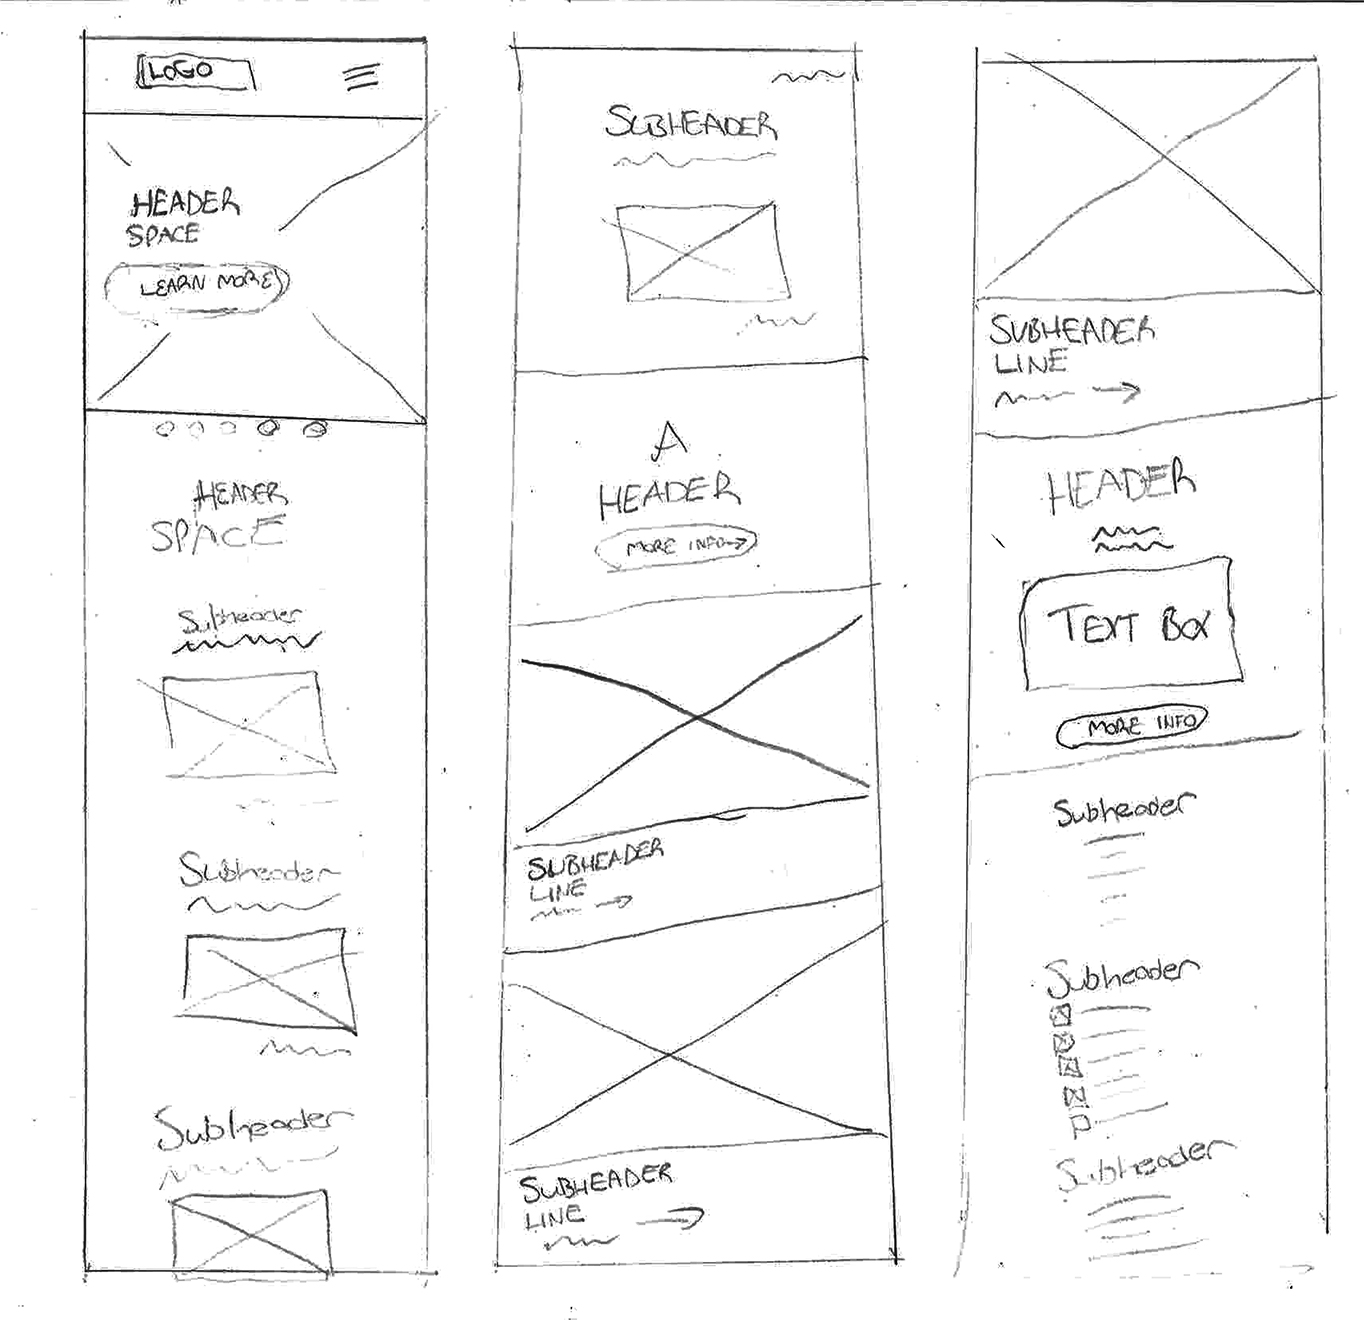 LOGO
HEADER
SPACE
LEARN MORE
HEADER
SPACE
Subheader
Subheader
Subheader
SUBHEADER
A
HEADER
MORE INFO→
SUBHEADER
LINE
SUBHEADER
LINE
SUBHEADER
LINE
HEADER
TEXT BOX
MORE INFO
Subheader
Subheader
Subheader